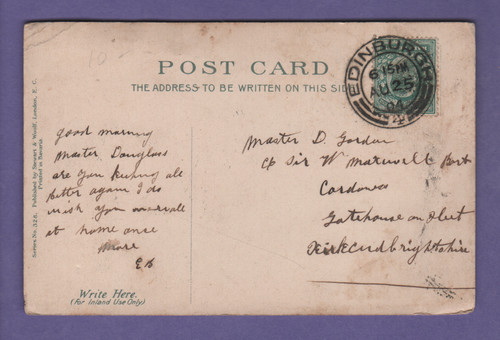 POST CARD
THE ADDRESS TO BE WRITTEN ON THIS SIDE
EDINBURGH
6 15 PM
AU 25
04
Series No. 326. Published by Stewart & Woolf, London, E. C.
Printed in Bavaria
good morning
Master Douglass
are you keeping all
better again I do
wish you
at home once
more
Master D. Gordon
c/o Sir W Maxwell Bart
Cardoness
Gatehouse on Fleet
Kirkcudbrightshire
Write Here.
(For Inland Use Only)